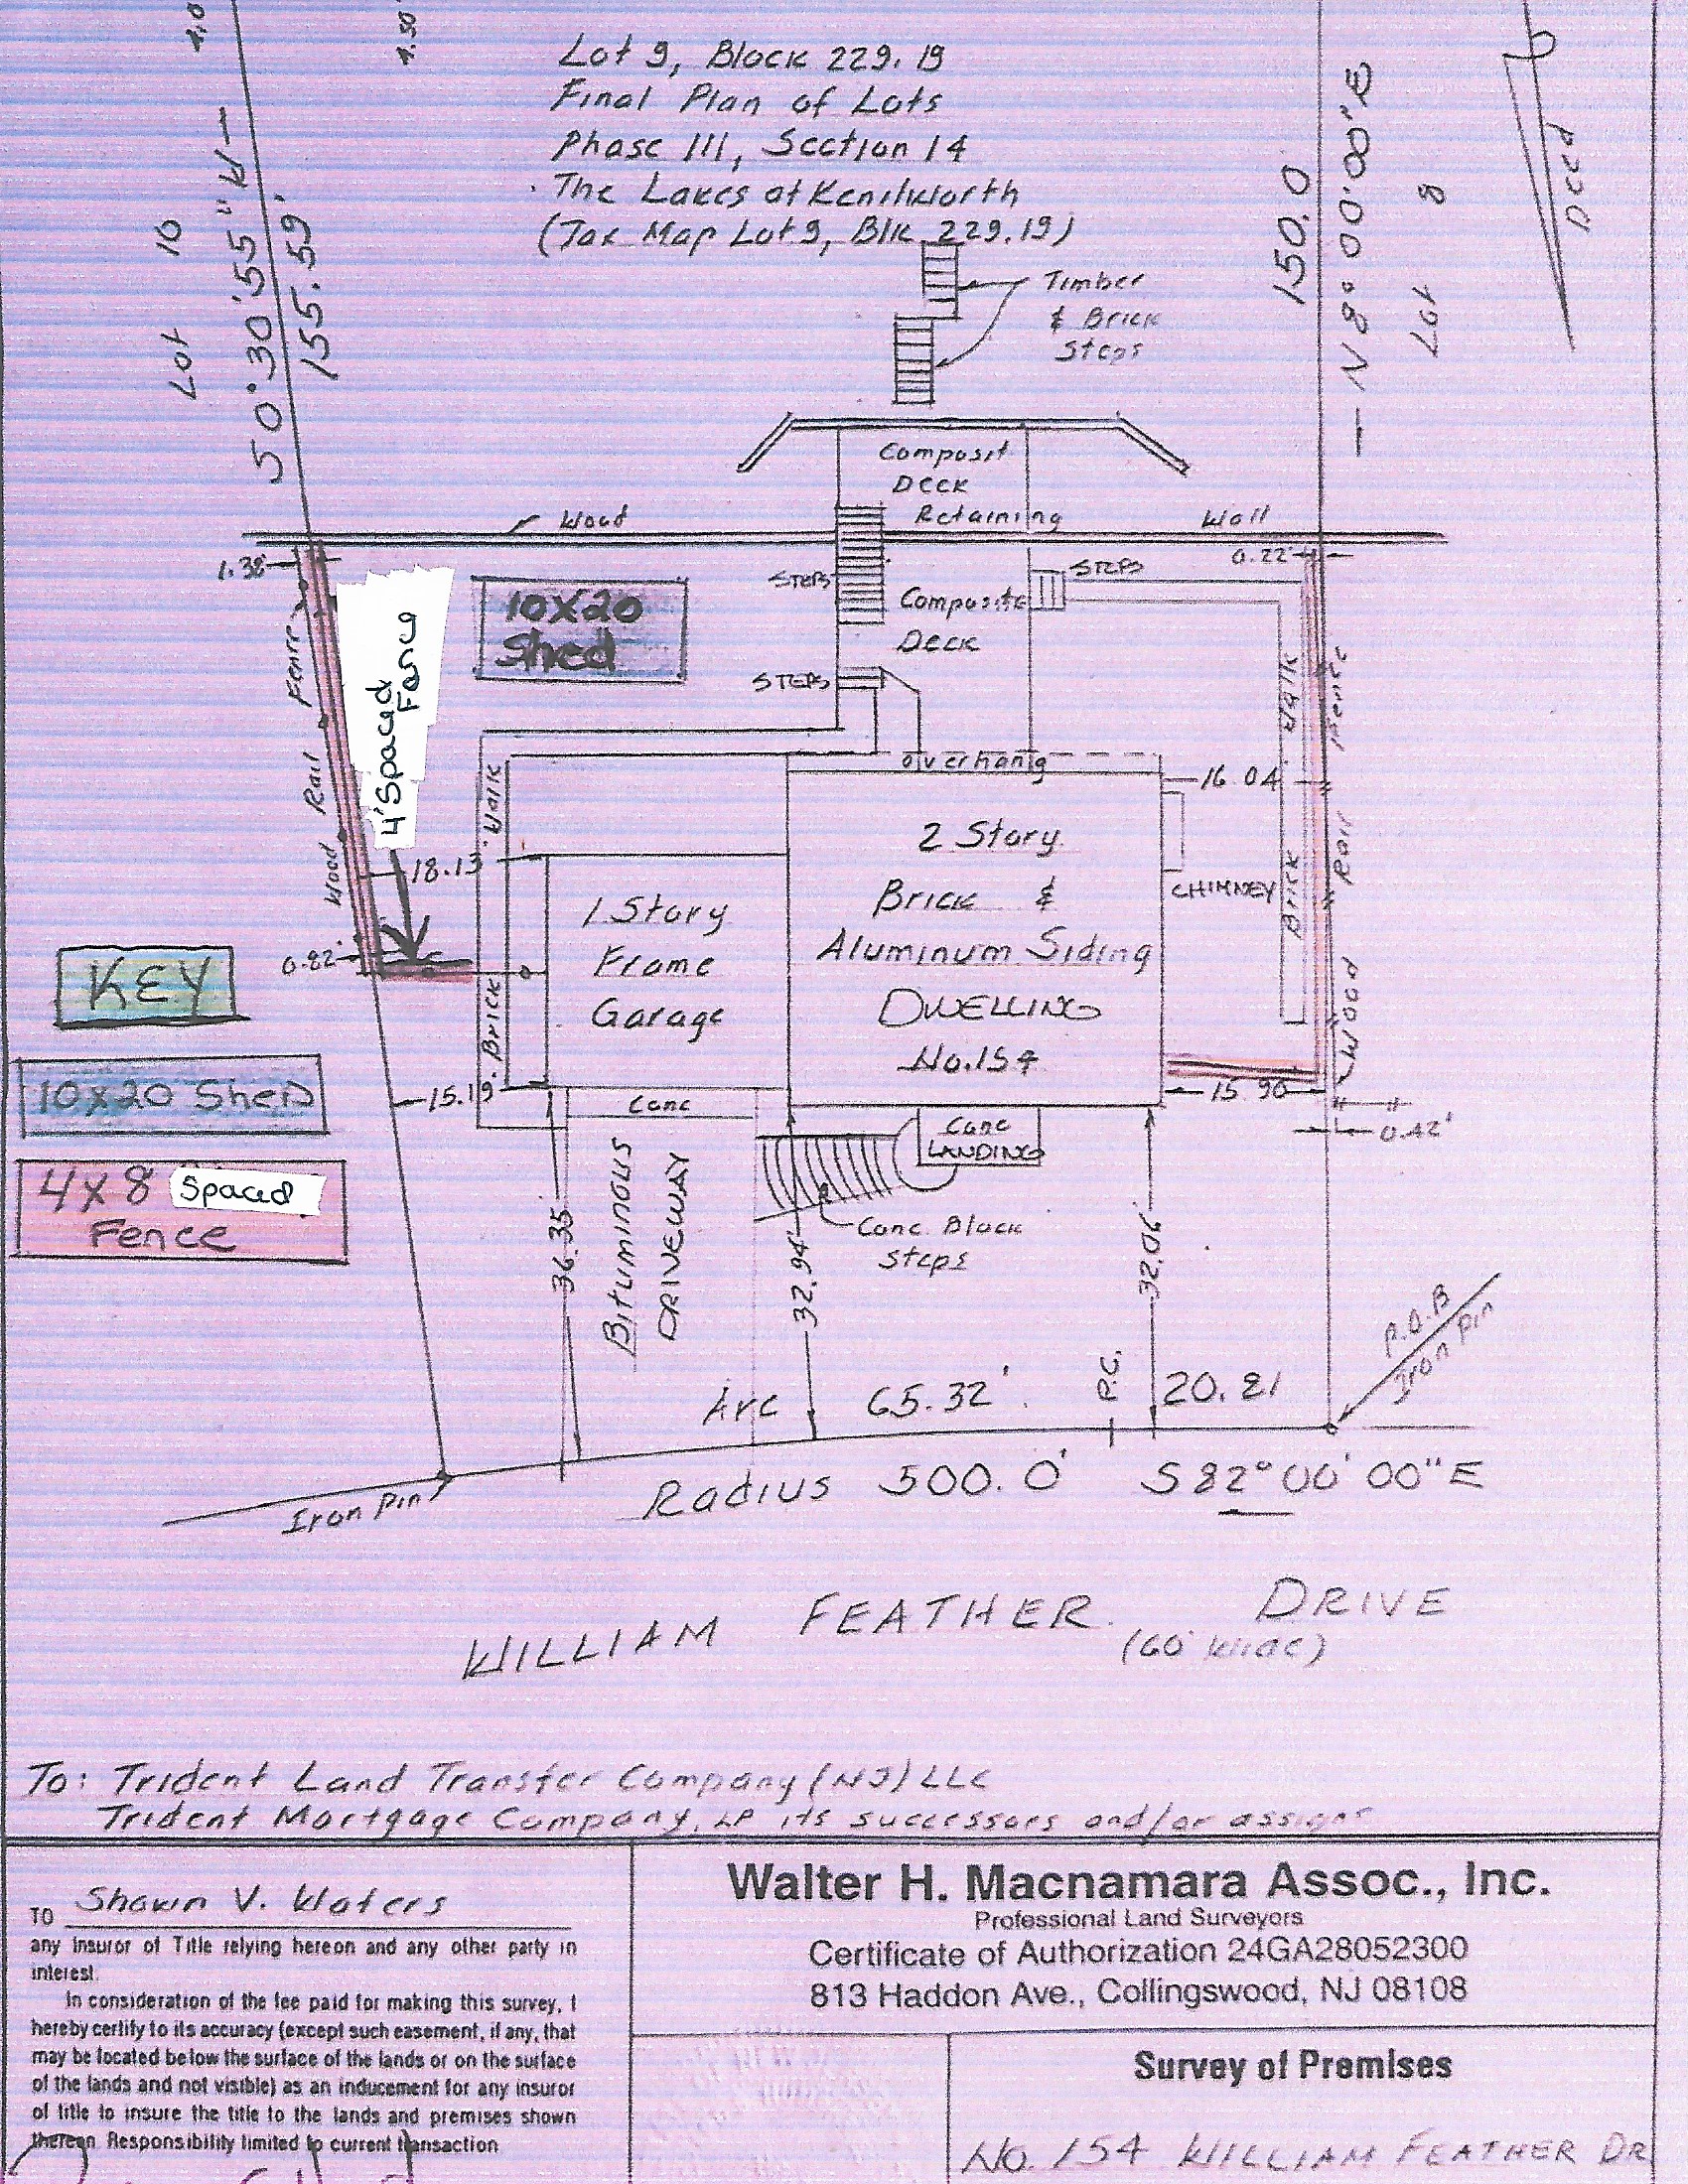 4.0
4.50
Lot 9, Block 229.19
Final Plan of Lots
Phase III, Section 14
The Lakes at Kenilworth
(Tax Map Lot 9, Blk 229.19)
Lot 10
50°30'55" W
155.59'
150.0
N 8° 00' 00" E
Lot 8
Deed
Timber
& Brick
Steps
Composit
Deck
Wood Retaining Wall
1.38'
0.22'
STEPS
STEPS
Composite
Deck
10X20
Shed
4' Spaced
Fence
STEPS
Wood Rail Fence
Walk
Brick
overhang
16.04
18.13
2 Story
Brick &
Aluminum Siding
DWELLING
No. 154
1 Story
Frame
Garage
CHIMNEY
Brick Walk
Wood Rail Fence
0.82'
KEY
10x20 Shed
4x8 Spaced
Fence
15.19
15.90
0.42'
Conc
Conc
LANDING
Bituminous
DRIVEWAY
Conc. Block
Steps
36.35
32.94
32.06
P.O.B
Iron Pin
Arc 65.32'
P.C.
20.81
Iron Pin
Radius 500.0' S 82° 00' 00" E
WILLIAM FEATHER DRIVE
(60' Wide)
To: Trident Land Transfer Company (NJ) LLC
Trident Mortgage Company, LP its successors and/or assigns
TO Shawn V. Waters
any Insuror of Title relying hereon and any other party in
interest.
In consideration of the fee paid for making this survey, I
hereby certify to its accuracy (except such easement, if any, that
may be located below the surface of the lands or on the surface
of the lands and not visible) as an inducement for any insuror
of title to insure the title to the lands and premises shown
thereon. Responsibility limited to current transaction
Walter H. Macnamara Assoc., Inc.
Professional Land Surveyors
Certificate of Authorization 24GA28052300
813 Haddon Ave., Collingswood, NJ 08108
Survey of Premises
No. 154 WILLIAM FEATHER DR